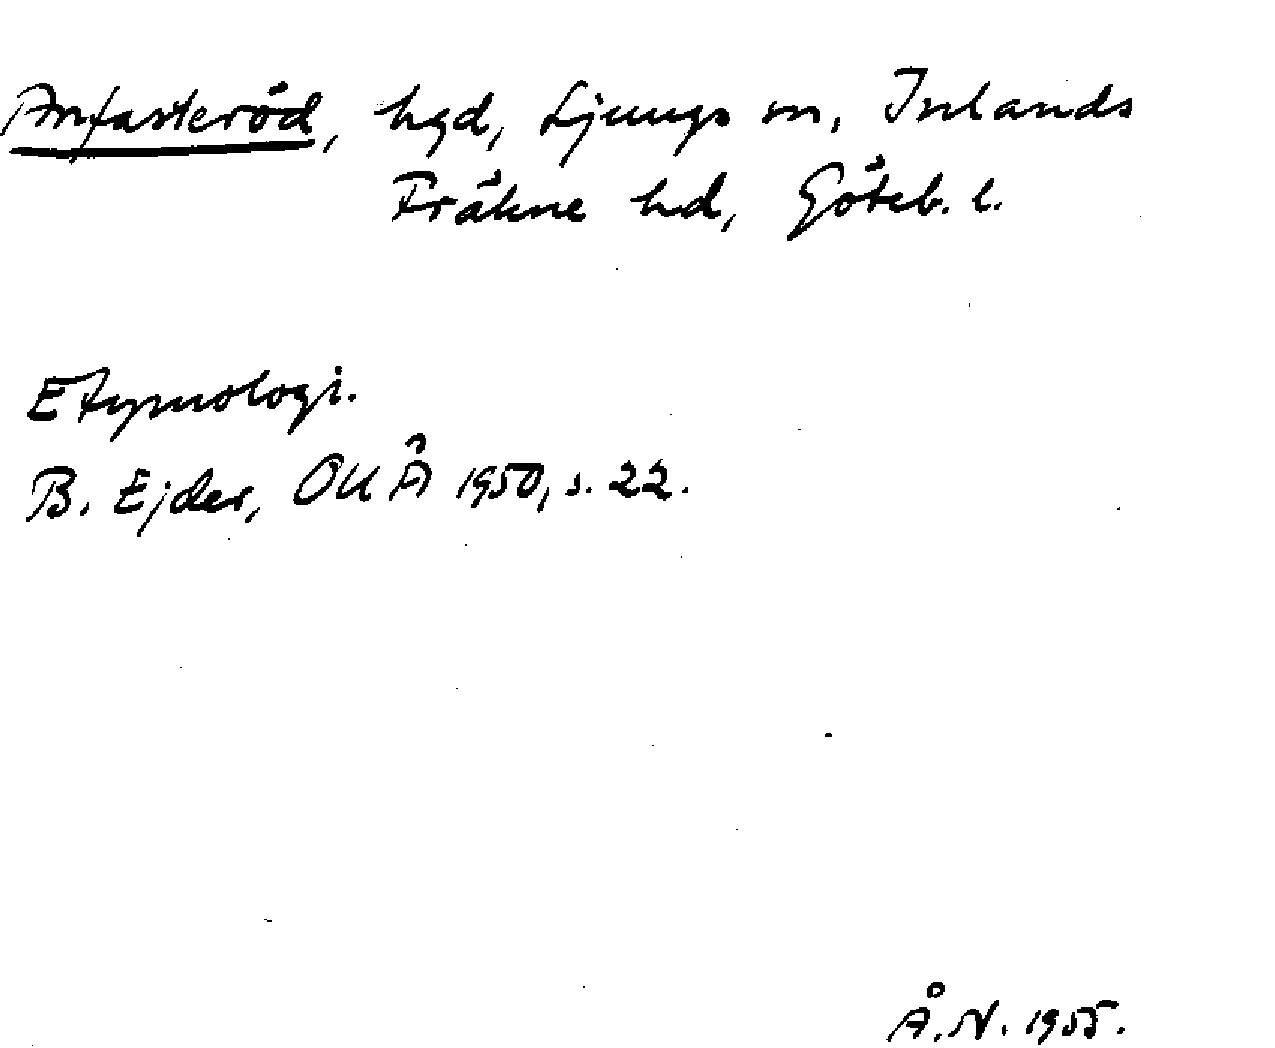 Anfasteröd, hgd, Ljungs sn, Inlands
Fräkne hd, Göteb. l.
Etymologi.
B. Ejder, OUÅ 1950, s. 22.
Å.N. 1955.